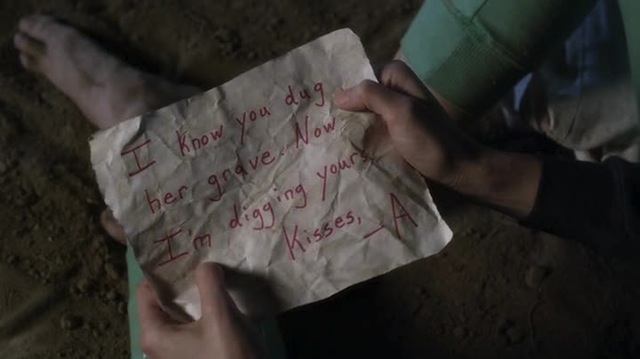 I know you dug
her grave. Now
I'm digging yours.
Kisses, -A